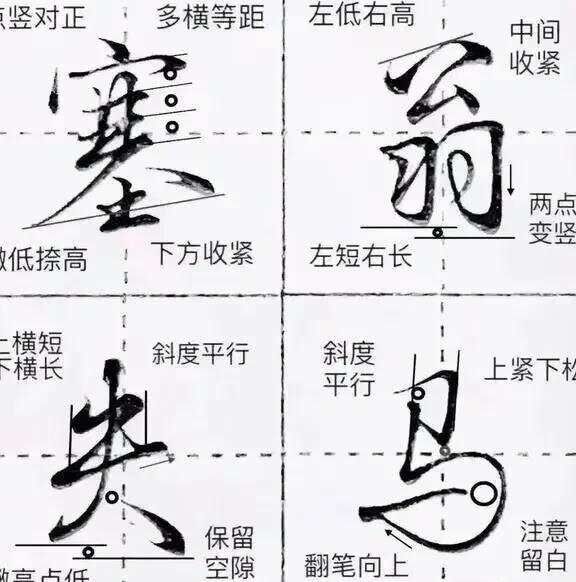 点竖对正
多横等距
塞
撇低捺高
下方收紧
左低右高
中间
收紧
翁
两点
变竖
左短右长
上横短
下横长
斜度平行
失
保留
空隙
撇高点低
斜度
平行
上紧下松
马
翻笔向上
注意
留白